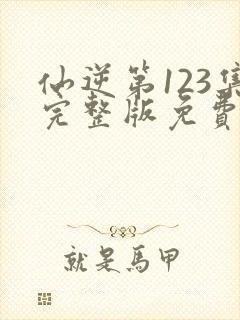 仙逆第123集
完整版免費
就是馬甲